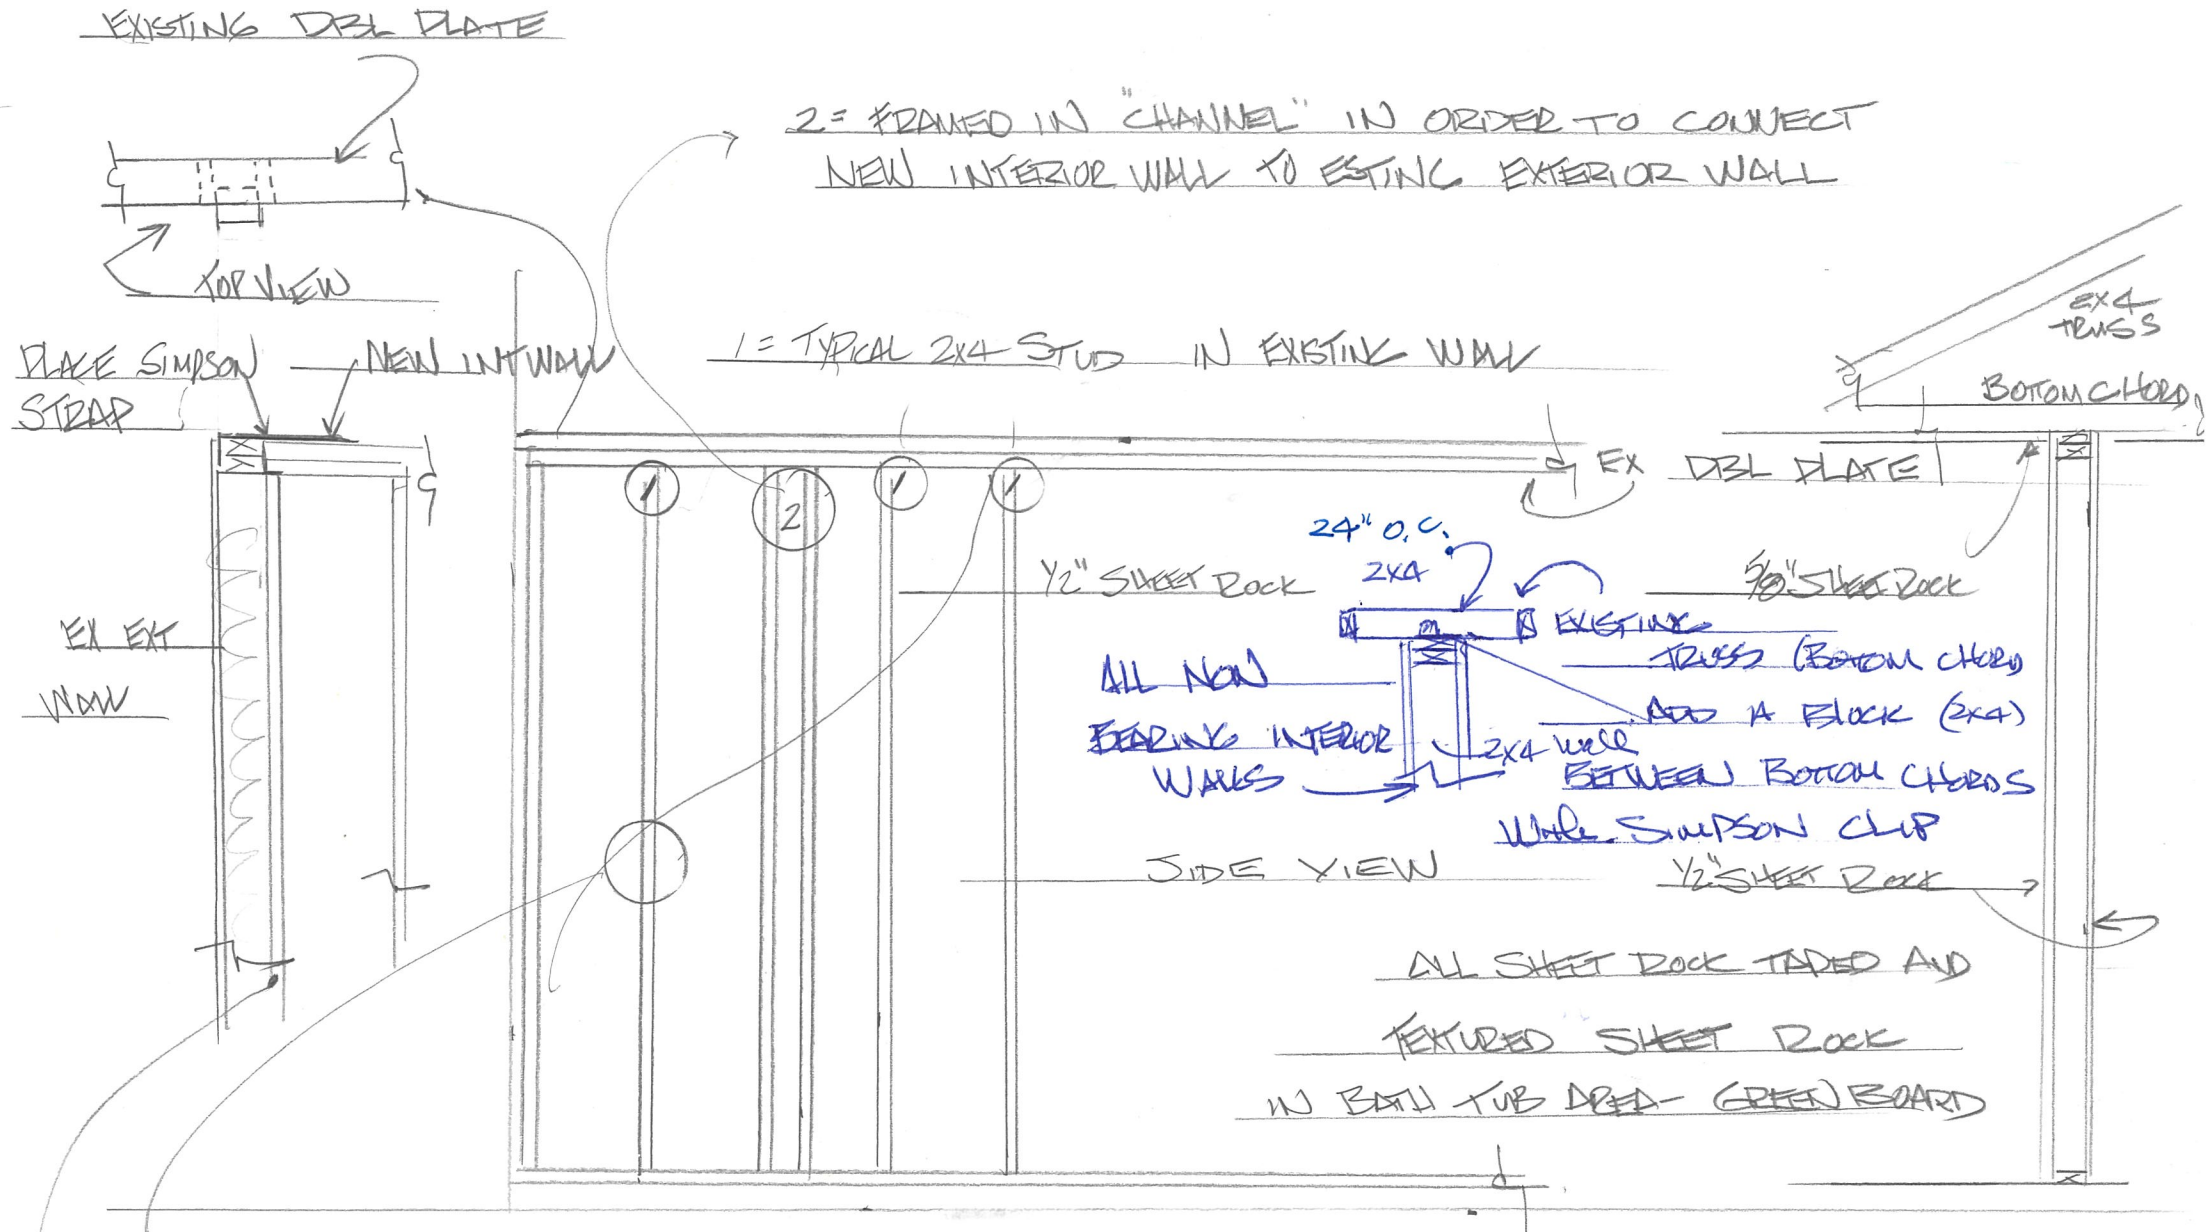 EXISTING DBL PLATE
2= FRAMED IN "CHANNEL" IN ORDER TO CONNECT
NEW INTERIOR WALL TO ESTING EXTERIOR WALL
TOP VIEW
PLACE SIMPSON
STRAP
NEW INT WALL
1= TYPICAL 2X4 STUD IN EXISTING WALL
2X4
TRUSS
BOTTOM CHORD
EX DBL PLATE
1
2
1
1
24" O.C.
2X4
1/2" SHEET ROCK
5/8" SHEET ROCK
EX EXT
WALL
EXISTING
TRUSS (BOTTOM CHORD
ADD A BLOCK (2X4)
BETWEEN BOTTOM CHORDS
SIMPSON CLIP
ALL NON
BEARING INTERIOR
WALLS
2X4 WALL
SIDE VIEW
1/2" SHEET ROCK
ALL SHEET ROCK TAPED AND
TEXTURED SHEET ROCK
IN BATH TUB AREA- GREEN BOARD